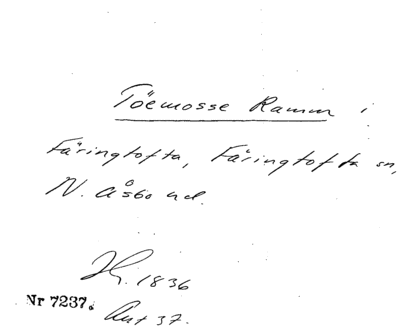 Töemosse Ramm i
Färingtofta, Färingtofta sn,
N. Åsbo hd.
Hj. 1836
Nr 7237.
Ant 37.